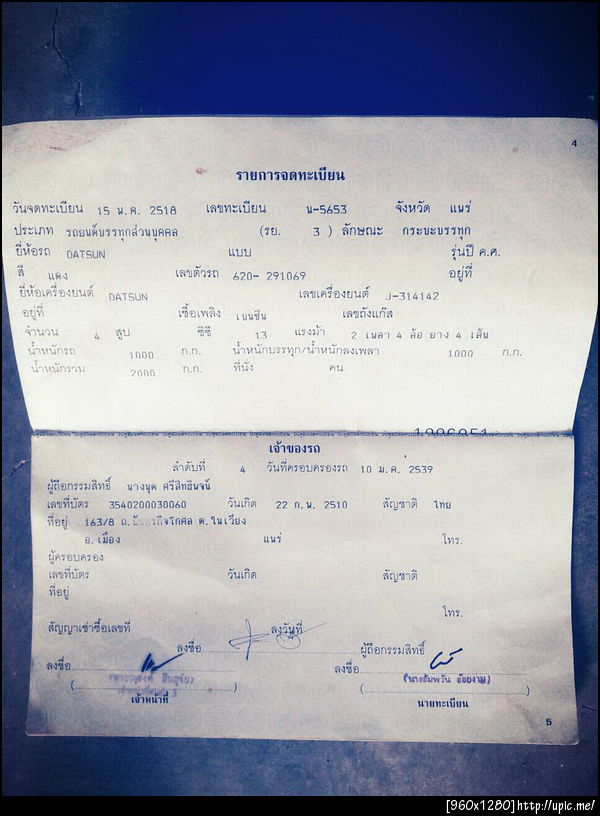 4
รายการจดทะเบียน
วันจดทะเบียน 15 ม.ค. 2518 เลขทะเบียน น-5653 จังหวัด แพร่
ประเภท รถยนต์บรรทุกส่วนบุคคล (รย. 3 ) ลักษณะ กระบะบรรทุก
ยี่ห้อรถ DATSUN แบบ รุ่นปี ค.ศ.
สี แดง เลขตัวรถ 620- 291069 อยู่ที่
ยี่ห้อเครื่องยนต์ DATSUN เลขเครื่องยนต์ J-314142
อยู่ที่ เชื้อเพลิง เบนซิน เลขถังแก๊ส
จำนวน 4 สูบ ซีซี 13 แรงม้า 2 เพลา 4 ล้อ ยาง 4 เส้น
น้ำหนักรถ 1000 ก.ก. น้ำหนักบรรทุก/น้ำหนักลงเพลา 1000 ก.ก.
น้ำหนักรวม 2000 ก.ก. ที่นั่ง คน
เจ้าของรถ
ลำดับที่ 4 วันที่ครอบครองรถ 10 ม.ค. 2539
ผู้ถือกรรมสิทธิ์ นางนุด
เลขที่บัตร 3540200030060 วันเกิด 22 ก.พ. 2510 สัญชาติ ไทย
ที่อยู่ 163/8 ถ. ต.ในเวียง
อ.เมือง แพร่ โทร.
ผู้ครอบครอง
เลขที่บัตร วันเกิด สัญชาติ
ที่อยู่
โทร.
สัญญาเช่าซื้อเลขที่ ลงวันที่
ลงชื่อ ผู้ถือกรรมสิทธิ์
ลงชื่อ ลงชื่อ
( ) (นางอัมพวัน อ้อยงาม)
เจ้าหน้าที่ นายทะเบียน
5
[960x1280]http://upic.me/